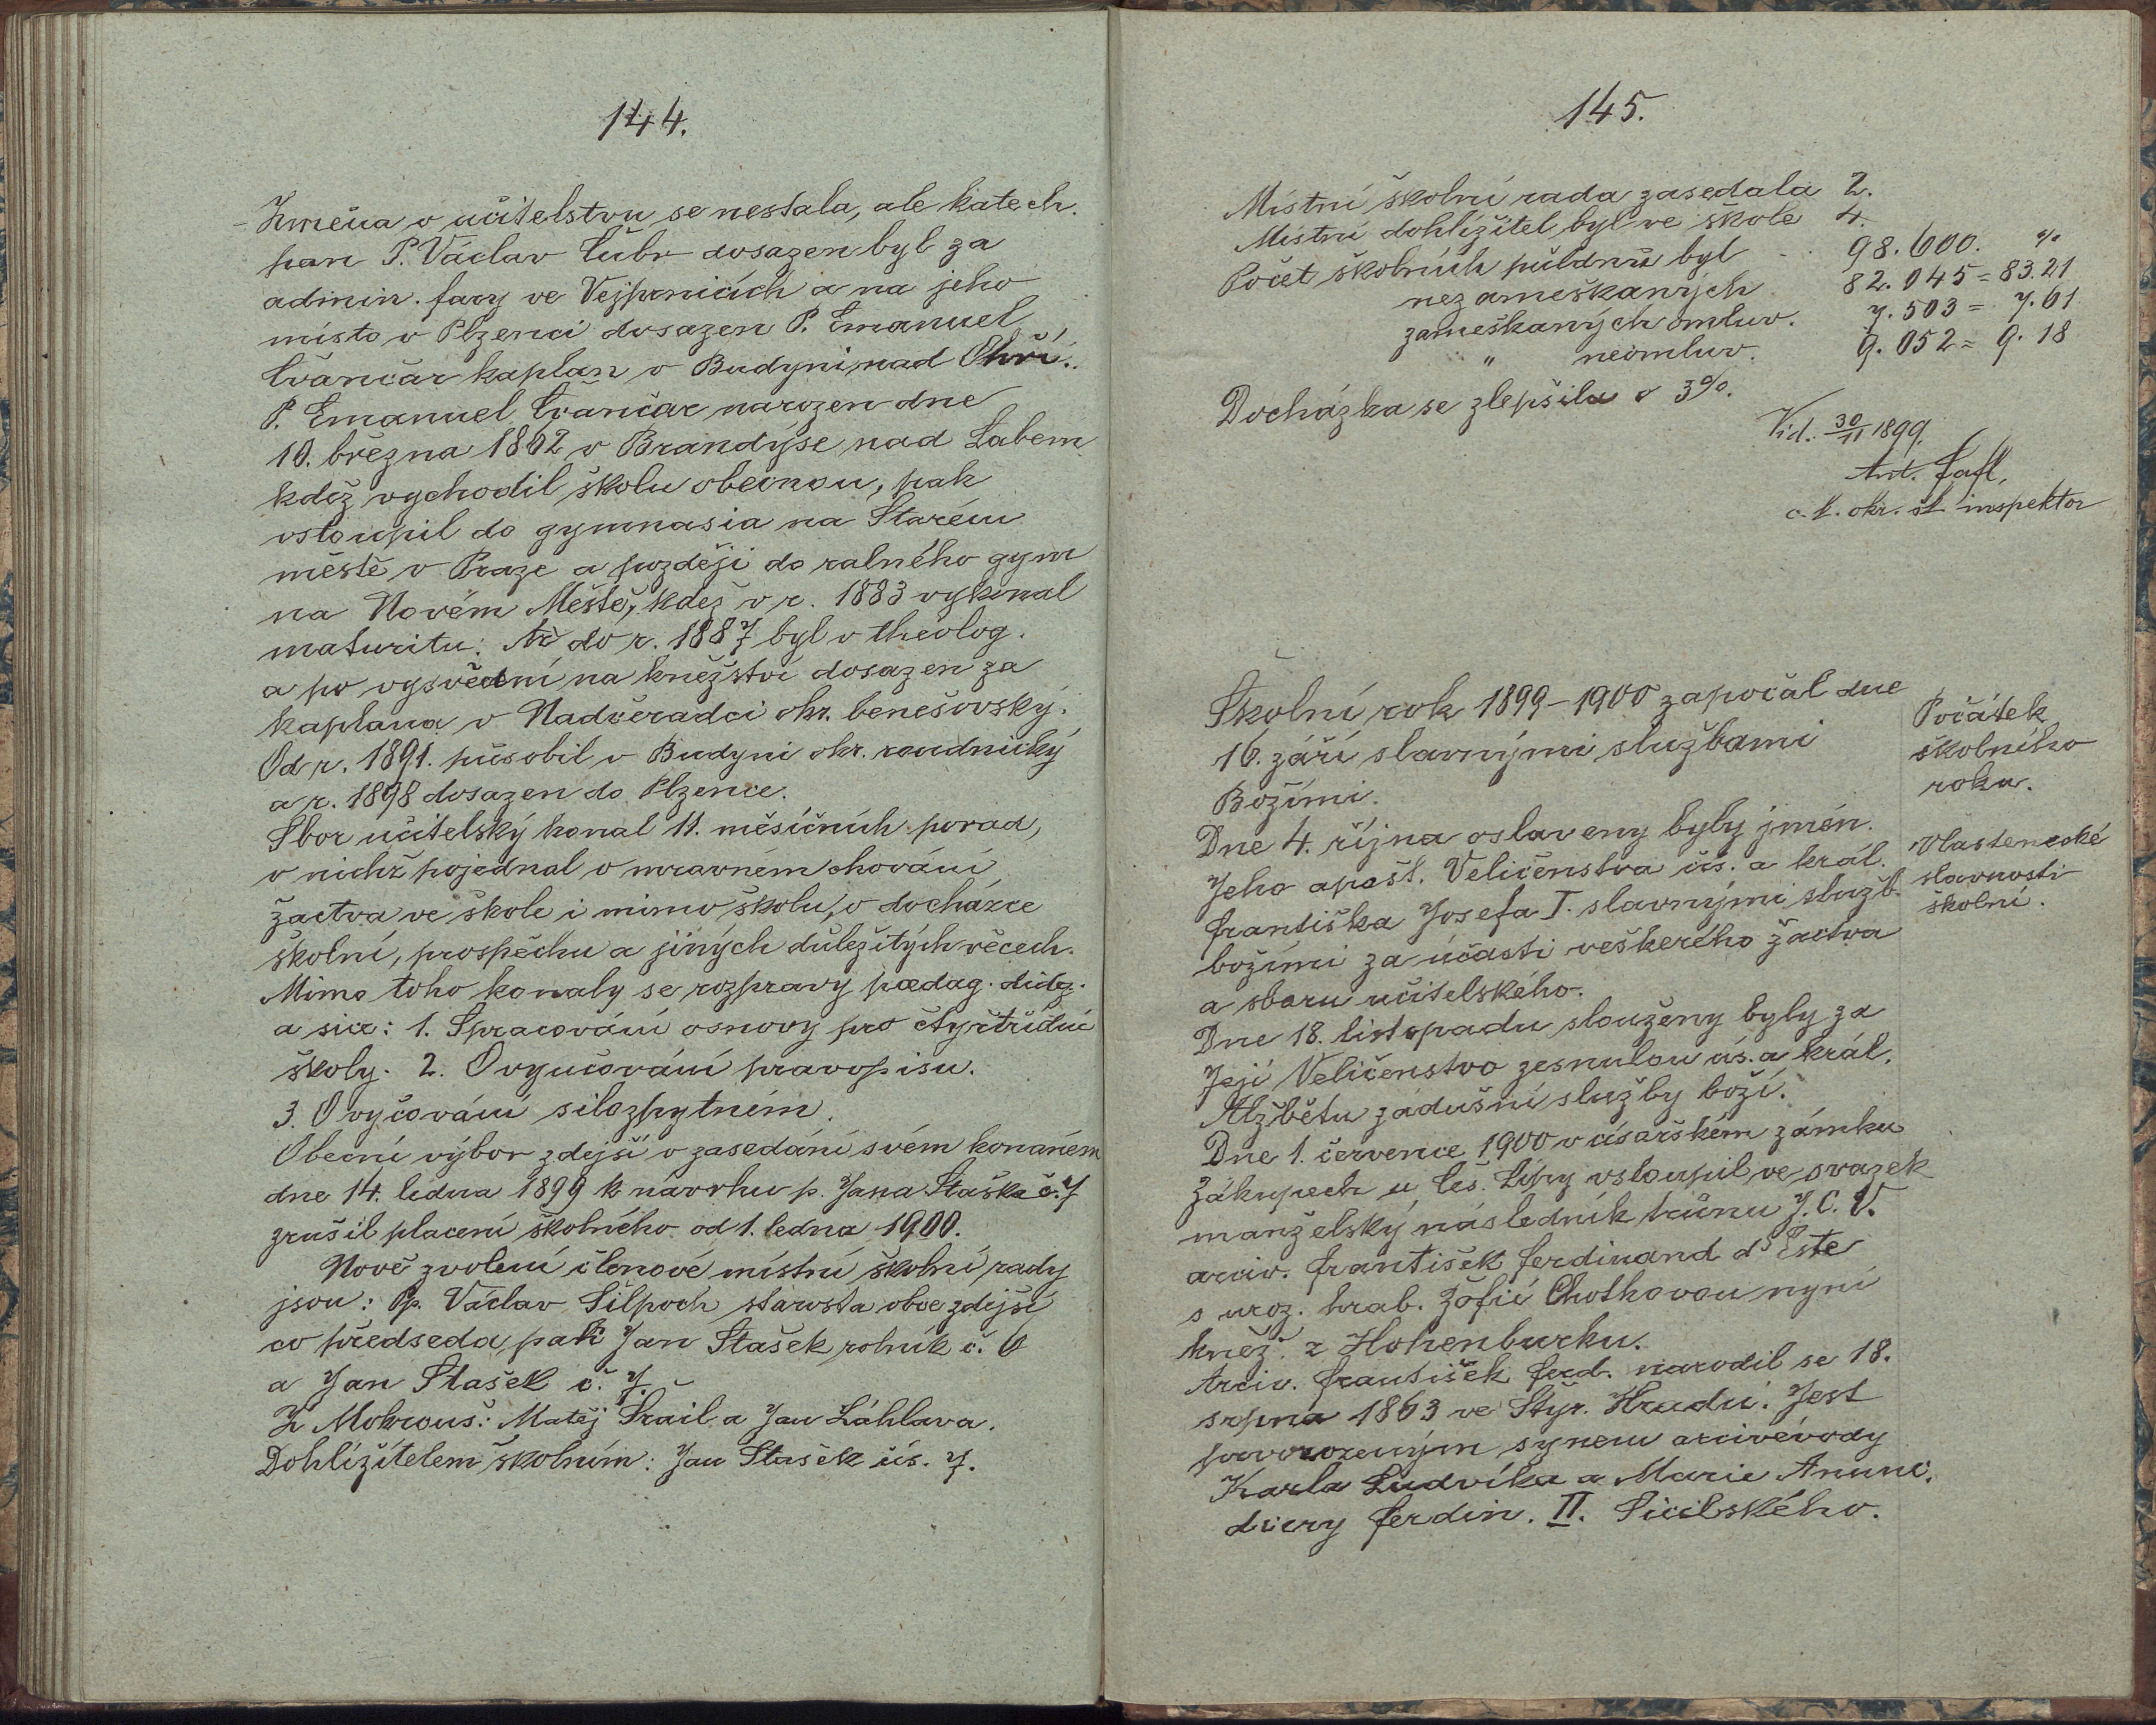 144.
Změna v učitelstvu se nestala, ale katech.
pan P. Václav Čubr dosazen byl za
admin. fary ve Vejprnicích a na jeho
místo v Plzenci dosazen P. Emanuel
Švančar kaplan v Budyni nad Ohří.
P. Emanuel Švančar narozen dne
10. března 1862 v Brandýse nad Labem
kdež vychodil školu obecnou, pak
vstoupil do gymnasia na Starém
městě v Praze a později do ralného gym
na Novém Městě, kdež v r. 1883 vykonal
maturitu. Až do r. 1887 byl v theolog.
a po vysvěcení na kněžství dosazen za
kaplana v Nadčeradci okr. benešovský.
Od r. 1891. působil v Budyni okr. roudnický
a r. 1898 dosazen do Plzence.
Sbor učitelský konal 11. měsíčních porad,
v nichž pojednal o mravném chování
žactva ve škole i mimo školu, o docházce
školní, prospěchu a jiných důležitých věcech.
Mimo toho konaly se rozpravy pædag. didg.
a sice: 1. Spracování osnovy pro čtyřtřídní
školy. 2. O vyučování pravopisu.
3. O vyčování silozpytném.
Obecní výbor zdejší v zasedání svém konaném
dne 14. lidna 1899 k návrhu p. Jana Staška č. 7
zrušil placení školního od 1. ledna 1900.
Nově zvolení členové místní školní rady
jsou: Pp. Václav Šilpoch starosta obce zdejší
co předseda, pak Jan Stašek rolník č. 6
a Jan Stašek č. 7.
Z Mokrouš: Matěj Šrail a Jan Záhlava.
Dohlížitelem školním: Jan Stašek čís. 7.
145.
Místní školní rada zasedala 2.
Místní dohlížitel byl ve škole 4.
Počet školních půldnů byl . . 98.600. %
nezameškaných 82.045 = 83.21
zameškaných omluv. 7.503 = 7.61
" neomluv. 9.052 = 9.18
Docházka se zlepšila o 3%.
Vid. 30/11 1899.
Ant. Šafl,
c. k. okr. šk. inspektor
Školní rok 1899-1900 započal dne
16. září slavnými službami
Božími.
Počátek
školního
roku.
Dne 4. října oslaveny byly jmén.
Jeho apošt. Veličenstva cís. a král.
Františka Josefa I. slavnými služb.
božími za účasti veškerého žactva
a sboru učitelského.
Vlastenecké
slavnosti
školní.
Dne 18. listopadu slouženy byly za
Její Veličenstvo zesnulou cís. a král.
Alžbětu zádušní služby boží.
Dne 1. července 1900 v císařském zámku
Zákupech u Čes. Lípy vstoupil ve svazek
manželský následník trůnu J. C. V.
arciv. František Ferdinand d' Este
s uroz. hrab. Žofií Chotkovou nyní
kněž. z Hohenburku.
Arciv. František Ferd. narodil se 18.
srpna 1863 ve Štyr. Hradci. Jest
prvorozeným synem arcivévody
Karla Ludvíka a Marie Anunc.
dcery Ferdin. II. Sicilského.